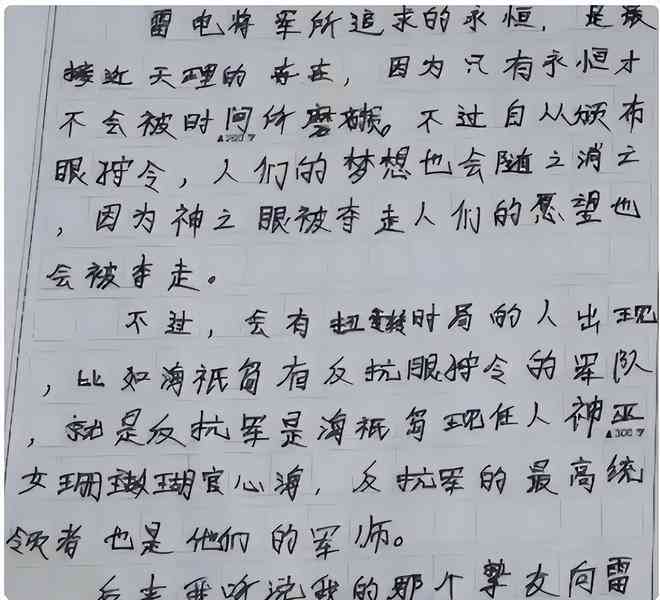 雷电将军所追求的永恒，是最
接近天理的存在，因为只有永恒才
不会被时间所磨损。不过自从颁布
▲200字
眼狩令，人们的梦想也会随之消亡
，因为神之眼被夺走人们的愿望也
会被夺走。
不过，会有扭转时局的人出现
，比如海祇岛有反抗眼狩令的军队
，就是反抗军是海祇岛现任人神巫
▲300字
女珊瑚宫心海，反抗军的最高统
领者也是他们的军师。
后来我听说我的那个挚友向雷